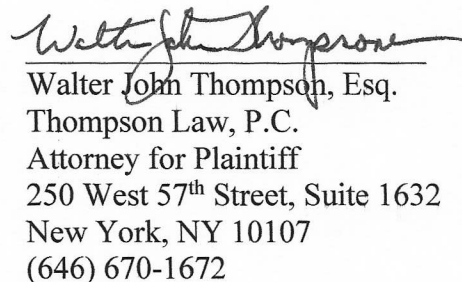 Walter John Thompson
Walter John Thompson, Esq.
Thompson Law, P.C.
Attorney for Plaintiff
250 West 57th Street, Suite 1632
New York, NY 10107
(646) 670-1672